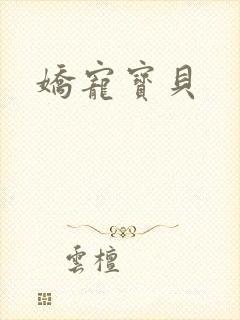 嬌寵寶貝
雲檀